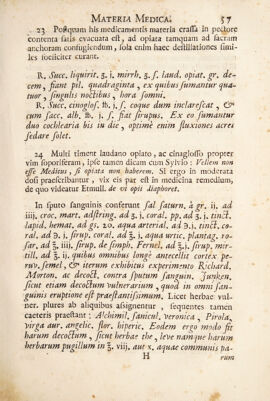 MATERIA MEDICA. 57
23 Postquam his medicamentis materia crassa in pectore
contenta satis evacuata est, ad opiata tamquam ad sacram
anchoram confugiendum, sola enim haec destillationes simi-
les foeliciter curant.
R. Succ. liquirit. ʒ. i, mirrh. ʒ. s. laud. opiat. gr. de-
cem, fiant pil. quadraginta, ex quibus sumantur qua-
tuor, singulis noctibus, hora somni.
R. Succ. cinoglos. ℔. j, s. coque dum inclarescat, &
cum sacc. alb. ℔. j. s. fiat sirupus. Ex eo sumantur
duo cochlearia bis in die, optimè enim fluxiones acres
sedare solet.
24 Multi timent laudano opiato, ac cinaglosso propter
vim soporiferam, ipse tamen dicam cum Sylvio: Vellem non
esse Medicus, si opiata non haberem. Si ergo in moderata
dosi praescribantur, vix eis par est in medicina remedium,
de quo videatur Etmull. de vi opii diaphoret.
In sputo sanguinis conferunt sal saturn. à gr. ij. ad
iiij, croc. mart. adstring. ad ʒ. j, coral. pp. ad ʒ. j. tinct.
lapid. hemat. ad gs. 20. aqua arterial, ad tinct. co-
ral. ad sirup. coral. ad aqua urtic, plantag. ro-
sar, ad sirup. de simph. Fernel, ad sirup. mir-
till, ad ij. quibus omnibus longè antecellit cortex pe-
ruv. semel, & iterum exhibitus experimento Richard,
Morton, ac decoct. contra sputum sanguin. Junken,
sicut etiam decoctum vulnerarium, quod in omni san-
guinis eruptione est praestantissimum. Licet herbae vul-
ner. plures ab aliquibus assignentur, sequentes tamen
caeteris praestant: Alchimil, sanicul, veronica, Pirola,
virga aur. angelic, flor. hiperic, Eodem ergo modo fit
harum decoctum, sicut herbae the, leve namque harum
herbarum pugillum in viij. aut x, aquae communis pa-
H rum